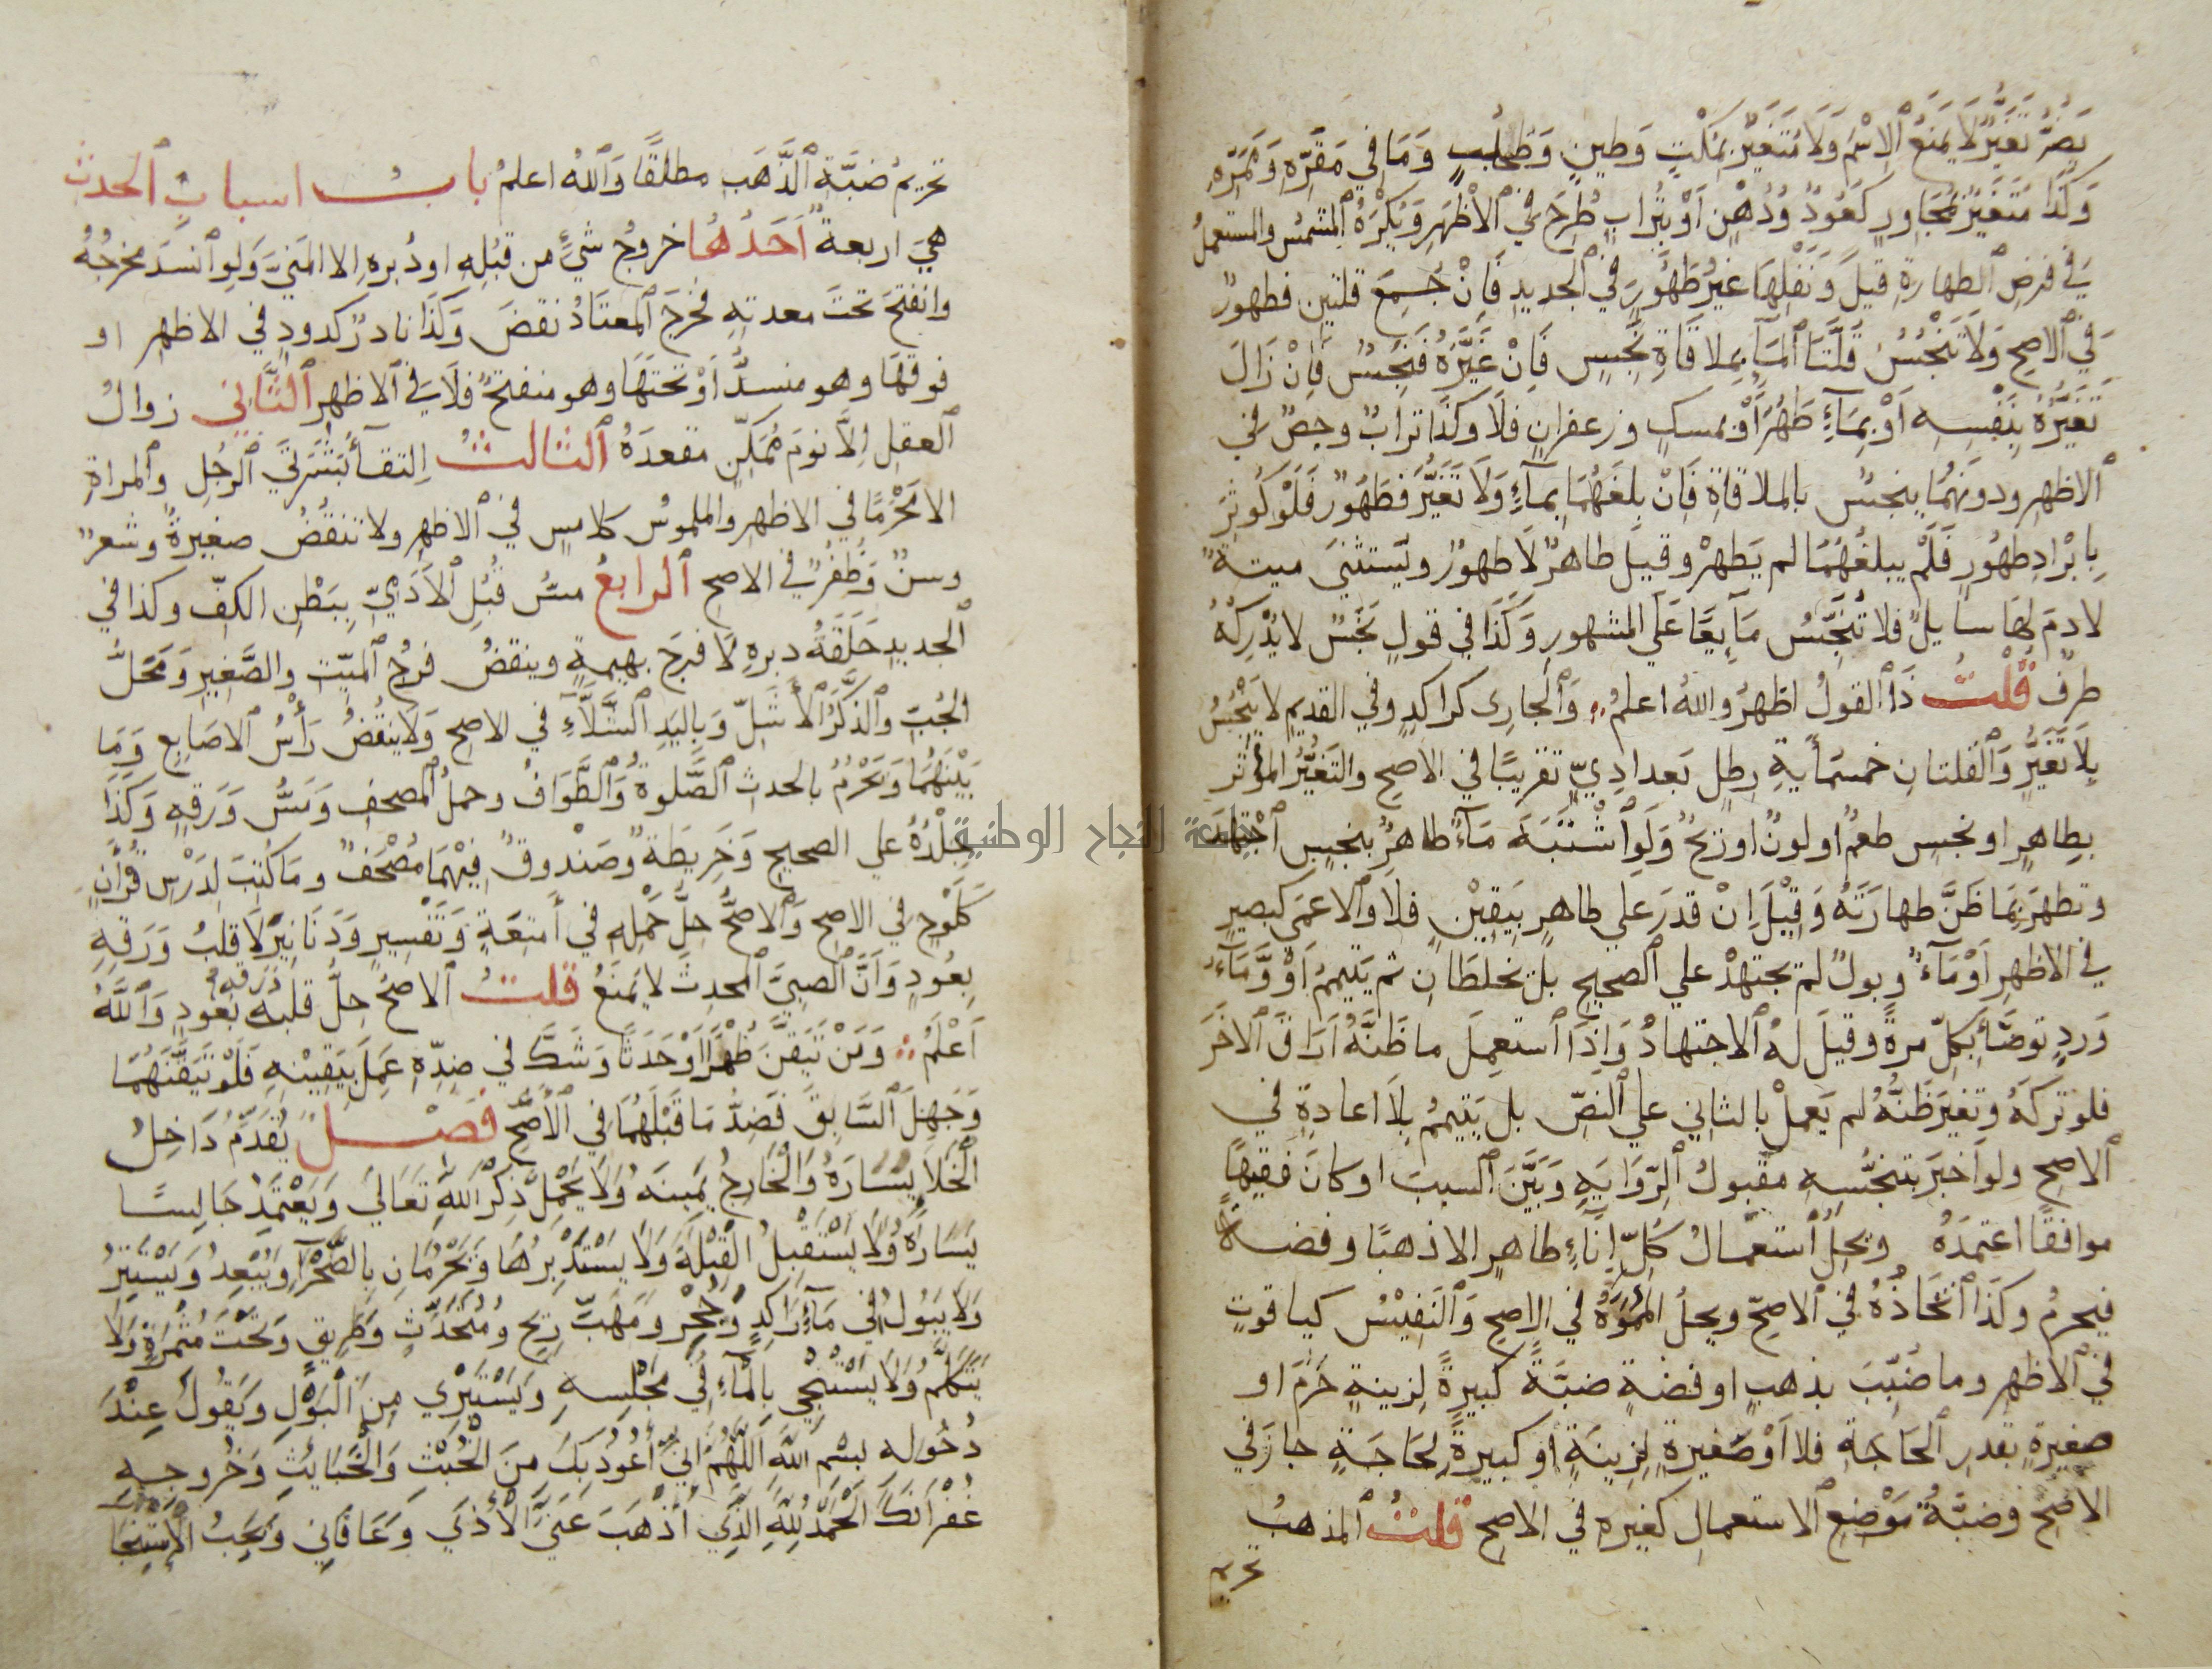 يَضُرُّ تَغَيُّرٌ لَا يَمْنَعُ ٱلِاسْمَ وَلَا مُتَغَيِّرٌ بِمُكْثٍ وَطِينٍ وَطُحْلُبٍ وَمَا فِي مَقَرِّهِ وَمَمَرِّهِ
وَكَذَا مُتَغَيِّرٌ بِمُجَاوِرٍ كَعُودٍ وَدُهْنٍ أَوْ بِتُرَابٍ طُرِحَ فِي ٱلْأَظْهَرِ وَيُكْرَهُ ٱلْمُشَمَّسُ والمستعملُ
فِي فرضِ ٱلطهارةِ قِيلَ وَنَفْلِهَا غيرُ طَهُورٍ فِي ٱلْجَدِيدِ فَإِنْ جُمِعَ قلتين فطهورٌ
فِي ٱلْأصحِ وَلَا تَنْجُسُ قُلَّتَا ٱلْمَآءِ بِملاقَاةِ نَجِسٍ فَإِنْ غَيَّرَهُ فَنَجِسٌ فَإِنْ زَالَ
تَغَيُّرُهُ بِنَفْسِهِ أَوْ بِمَآءٍ طَهُرَ أَوْ بمسكٍ وزعفرانٍ فلَا وَكَذَا ترابٌ وجصٌ في
ٱلاظهرِ ودونهُمَا ينجسُ بالملاقاةِ فَإِنْ بلغَهُمَا بماءٍ وَلَا تَغَيُّرَ فَطَهُورٌ فَلَوْ كُوثِرَ
بِإِيْرَادِ طهُورٍ فَلَمْ يبلغْهُمَا لم يَطهرْ وقيلَ طاهرٌ لَا طهورٌ ويُستثنَى ميتةٌ
لا دمَ لِهَا سايلٌ فلا تُنَجِّسُ مَآيِعًا عَلَي المشهورِ وَكَذَا في قولٍ نَجَسٌ لا يُدْرِكُهُ
طرفٌ قُلْتُ ذَا ٱلقولُ اظهرُ واللهُ اعلمُ وَٱلْجارِي كراكدٍ وفي القديمِ لا يَنْجُسُ
بِلَا تَغَيُّرٍ وَٱلْقلتانِ خمسمأيةِ رطلٍ بَغدادِيٍّ تقريبًا في الاصحِ والتَغَيُّرُ المؤثرُ
بِطاهرٍ او نجسٍ طعمٌ او لونٌ او رِيحٌ وَلَوِ ٱشْتَبَهَ مَآءٌ طاهرٌ بنجسٍ ٱجْتَهَدَ
وتطهرَ بِمَا ظَنَّ طهارَتَهُ وَقِيْلَ إِنْ قدرَ علي طاهرٍ بِيَقِيْنٍ فلا وٱلاعمَى كبصيرٍ
في الاظهرِ أَوْ مَآءٌ وبولٌ لم يجتهدْ علي ٱلصحيحِ بل يخلطَانِ ثم يَتيممُ أَوْ وَّمَآءُ
وَردٍ توضَّأَ بِكلٍّ مرةً وقيلَ لهُ ٱلاجتهادُ وَإِذَا ٱستعملَ ما ظَنَّهُ أَرَاقَ ٱلاخَرَ
فلو تركَهُ وتغيرَ ظَنُّهُ لم يَعملْ بالثاني علي ٱلنصِّ بل يَتيممُ بِلَا اعادةٍ في
ٱلاصحِ ولو أَخبرَ بتنجُّسهِ مقبولُ ٱلرِّوَايَةِ وَبَيَّنَ ٱلسببَ او كانَ فقيهًا
موافقًا اعتمدَهُ ويحِلُّ ٱستعمالُ كُلِّ إِنَاءٍ طاهرٍ الا ذهبًا وفضةً
فيحرمُ وكذَا ٱتخَاذُهُ في ٱلاصحِّ ويحلُ المُمَوَّهُ في الاصحِ وَٱلنَفِيْسُ كياقوتٍ
في ٱلاظهرِ وما ضُبِّبَ بذهبٍ او فضةٍ ضبَّةً كبيرةً لِزينةٍ حَرُمَ او
صغيرةٍ بقدرِ ٱلحَاجَةِ فلا أَوْ صَغيرةٍ لِزينَةٍ أو كبيرةً لِحَاجَةٍ جازَ في
الاصحِّ وضبَّةُ مَوْضعِ ٱلاستعمالِ كغيرهِ في الاصحِ قلتُ ٱلمذهبُ
تحريم
تحريمُ ضبَّةِ ٱلذَّهَبِ مطلقًا وَٱللهُ اعلمُ بابُ اسبابِ ٱلحدثِ
هِيَ اربعةٌ أَحَدُهُا خروجُ شيءٍ من قبُلِهِ او دُبرهِ الا المَنِيَّ وَلَوِ ٱنسدَّ مخرجُهُ
وانفتحَ تحتَ معدتِهِ فخرجَ ٱلمعتَادُ نقضَ وَكَذَا نادرٌ كدودٍ في الاظهرِ او
فوقَهَا وهو منسدٌّ أَوْ تحتَهَا وهو منفتحٌ فلَا فِي ٱلاظهرِ ٱلثَّاني زوالُ
ٱلعقلِ إِلَّا نومَ مُمَكِّنٍ مقعدَهُ ٱلثالثُ التقأُ بَشَرَتَيِ ٱلرَّجُلِ وٱلمراةِ
الا مَحْرَمًا في الاظهرِ والملموسُ كلامسٍ في ٱلاظهرِ ولا تنقضُ صغيرةٌ وشعرٌ
وسنٌ وَظُفرٌ في الاصحِ ٱلرابعُ مسُّ قُبُلِ ٱلْأَدَمِيِّ بِبَطْنِ الكفِّ وكذا في
ٱلجديدِ حَلَقَةُ دبرهِ لَا فرجَ بهيمةٍ وينقضُ فرجُ ٱلميِّتِ والصَّغيرِ وَمَحَلُّ
الجُبِّ وَٱلذَّكَرُ ٱلْأَشَلُّ وَبِاليَدِ ٱلشَّلَّآءِ في الاصحِ وَلَا ينقُضُ رَأْسُ ٱلاصَابِعِ وَمَا
بَيْنَهُمَا وَيَحْرُمُ بالحدثِ ٱلصَّلوةُ وَٱلطَّوَافُ وحملُ ٱلمصحفِ وَمَسُّ وَرَقِهِ وَكَذَا
جِلْدُهُ علي الصحيحِ وَخَرِيطَةٌ وصَنْدوقٌ فِيْهِمَا مُصْحَفٌ وما كُتِبَ لِدَرْسِ قُرْأَنٍ
كَلَوْحٍ فِي الاصحِ وَٱلاصحُّ حِلُّ حَمْلِهِ في أَمتعَةٍ وَتَفْسِيرٍ وَدَنَانِيرَ لَا قلبُ وَرَقِهِ
بِعُودٍ وَأَنَّ ٱلصبيَّ ٱلمحدِثَ لا يُمنَعُ قلتُ ٱلاصحُّ حِلُّ قلبِ ورقه بعودٍ وَٱللَّهُ
أَعْلَمُ وَمَنْ تَيَقَّنَ طُهْرًا أَوْ حَدَثًا وَشَكَّ في ضِدِّهِ عَمِلَ بِيَقِيْنِهِ فَلَوْ تَيَقَّنَهُمَا
وَجَهِلَ ٱلسَّابِقَ فَضِدُّ مَا قَبْلَهُمَا فِي ٱلْأَصَحِّ فَصْلٌ يُقَدِّمُ دَاخِلُ
ٱلْخَلَاءِ يَسَارَهُ وَٱلْخَارِجُ يَمِينَهُ وَلَا يَحْمِلُ ذِكْرَ ٱللَّهِ تَعَالَي وَيَعْتَمِدُ جَالِسًا
يَسَارَهُ وَلَا يَسْتَقْبِلُ ٱلْقِبْلَةَ وَلَا يَسْتَدْبِرُهَا وَيَحْرُمَانِ بِالصَّحْرَآءِ وَيُبْعِدُ وَيَسْتَتِرُ
وَلَا يَبُولُ فِي مَآءٍ رَاكِدٍ وَجُحْرٍ وَمَهَبِّ رِيْحٍ وَمُتَحَدَّثٍ وَطَرِيقٍ وَتَحْتَ مُثْمِرَةٍ وَلَا
يَتَكَلَّمُ وَلَا يَسْتَنْجِي بِالْمَاءِ فِي مَجْلِسِهِ وَيَسْتَبْرِي مِنَ ٱلْبَوْلِ وَيَقُولُ عِنْدَ
دُخُولِهِ بِسْمِ ٱللَّهِ ٱللَّهُمَّ إِنِّي أَعُوذُ بِكَ مِنَ ٱلْخُبْثِ وَٱلْخَبَايِثِ وَخُرُوجِهِ
غُفْرَانَكَ ٱلْحَمْدُ لِلَّهِ ٱلَّذِي أَذْهَبَ عَنِّيَ ٱلْأَذَي وَعَافَانِي وَيَجِبُ ٱلْإِسْتِنْجَا
جامعة النجاح الوطنية